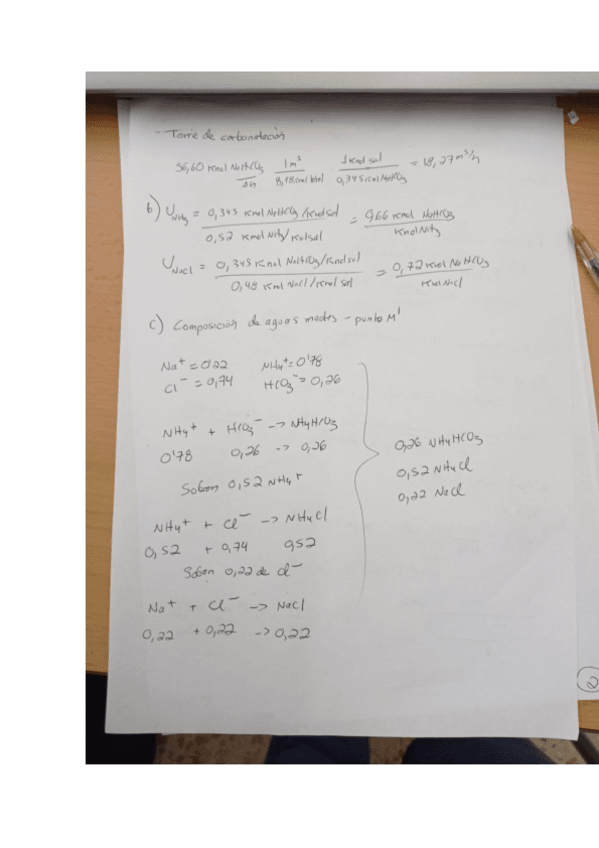 - Torre de carbonatación
56,60 Kmol NaHCO3 / 1h · 1 m3 / 8,98 Kmol total · 1 Kmol sol / 0,345 Kmol NaHCO3 = 18,27 m3/h
b) UNH3 = 0,345 Kmol NaHCO3/Kmol sol / 0,52 Kmol NH3/Kmol sol = 0,66 Kmol NaHCO3 / Kmol NH3
UNaCl = 0,345 Kmol NaHCO3/Kmol sol / 0,48 Kmol NaCl/Kmol sol = 0,72 Kmol NaHCO3 / Kmol NaCl
c) Composición de aguas madres - punto M'
Na+ = 0'22 NH4+ = 0'78
Cl- = 0,74 HCO3- = 0,26
NH4+ + HCO3- -> NH4HCO3
0'78 0,26 -> 0,26
Sobran 0,52 NH4+
NH4+ + Cl- -> NH4Cl
0,52 + 0,74 0,52
Sobran 0,22 de Cl-
Na+ + Cl- -> NaCl
0,22 + 0,22 -> 0,22
0,26 NH4HCO3
0,52 NH4Cl
0,22 NaCl
2